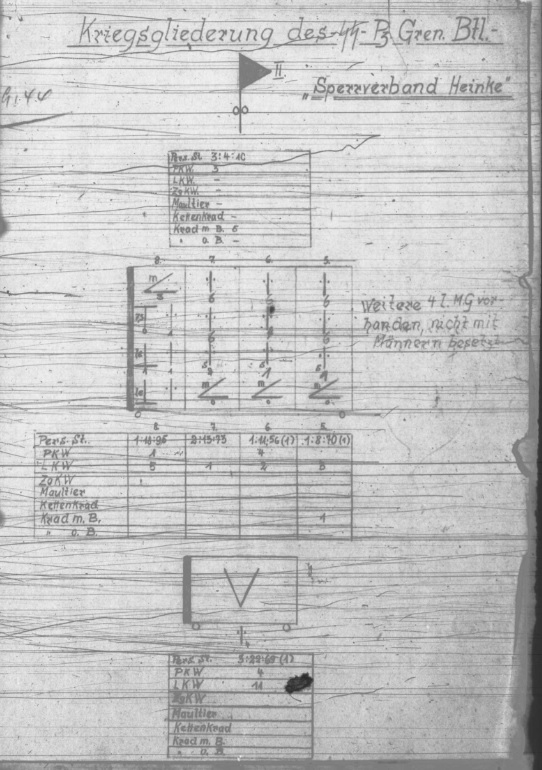 Kriegsgliederung des ᛋᛋ-Pz. Gren. Btl.-
II.
„Sperrverband Heinke"
Pers. St. 3:4:10
PKW. 3
LKW. -
ZgKW. -
Maultier -
Kettenkrad -
Krad m. B. 5
" o. B. -
8. 7. 6. 5.
Weitere 4 l. MG vor-
handen, nicht mit
Männern besetzt
8. 7. 6. 5.
Pers. St. 2:13:73 1:8:70(1)
PKW 1 ~ 4
LKW 5 1 2 3
ZgKW
Maultier
Kettenkrad
Krad m. B. 1
" o. B.
V
Pers. St.
PKW 4
LKW 11
ZgKW
Maultier
Kettenkrad
Krad m. B.
" o. B.